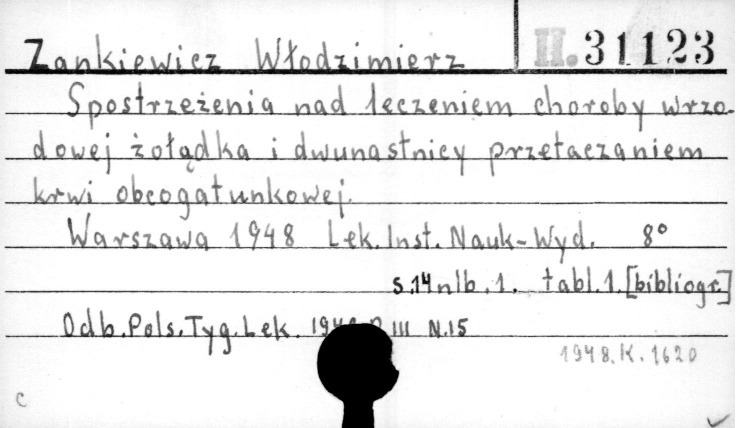 Zankiewicz Włodzimierz II.31123
Spostrzeżenia nad leczeniem choroby wrzo-
dowej żołądka i dwunastnicy przetaczaniem
krwi obcogatunkowej.
Warszawa 1948 Lek. Inst. Nauk-Wyd. 8°
s.14 nlb.1. tabl.1.[bibliogr.]
Odb.Pols.Tyg.Lek. III N.15
1948.K.1620
c